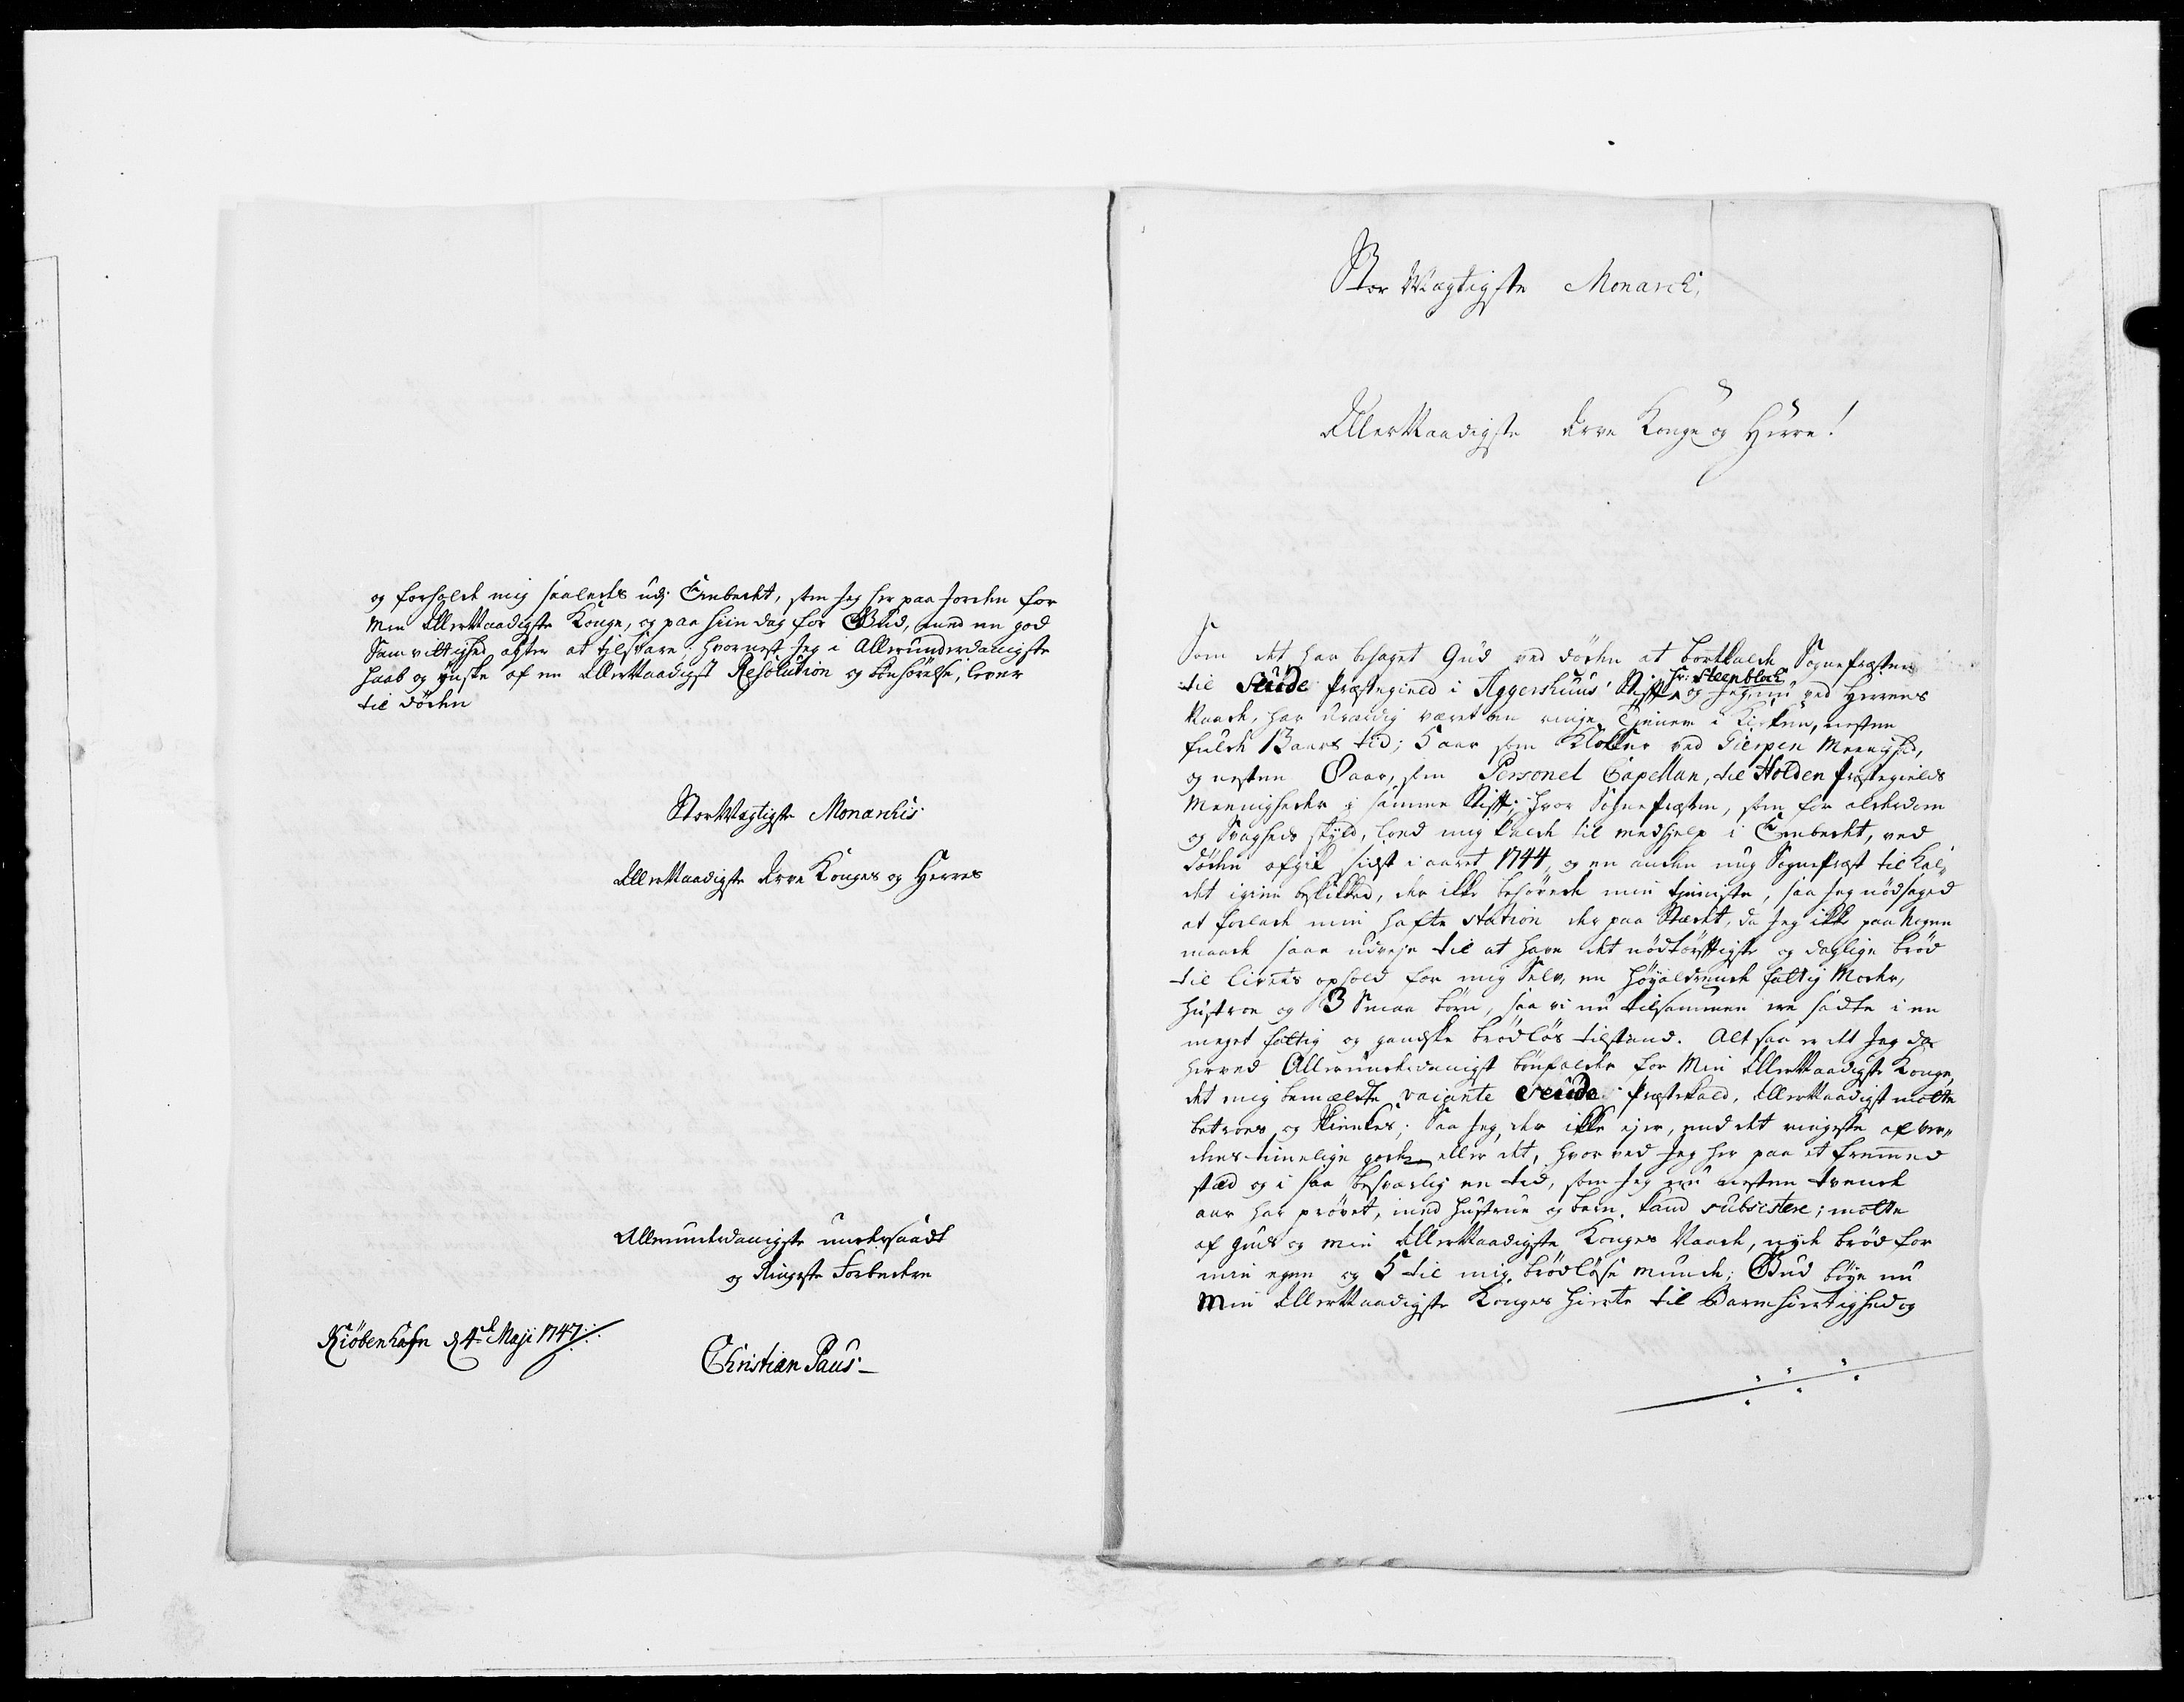 StorMægtigste Monarch,
AllerNaadigste Arve Konge og Herre!
Som det har behaget Gud ved døden at bortkalde Sognepræsten
til Seüde Præstegield i Aggershuus Stifft, Hr: Steenbloch og Jeg, nu ved Herrens
Naade, har uværdig været en ringe Tjener i Kirken, nesten
fulde 13 aars tid; 5 aar som Klokker ved Gierpen Meenighed,
og nesten 8 aar, som Personel Capellan, til Holden Præstegields
Meenigheder i samme Stifft; hvor Sognepræsten, som for alderdom
og Svagheds skyld, lod mig kalde til medhjelp i Embedet, ved
døden afgik sidst i aaret 1744, og en anden ung Sognepræst til Kal-
det igien beskikked, der ikke behøvede min tjeneste, saa Jeg nødsaged
at forlade min hafte Station der paa Stædet, da Jeg ikke paa nogen
maade saae udveje til at have det nødtørfftigste og daglige brød
til livets ophold for mig Selv, en høyaldrende fattig Moder,
Hustroe og 3 Smaa børn, saa vi nu tilsammen ere sadte i en
meget fattig og gandske brødløs tilstand. Altsaa er det Jeg da
herved Allerunderdanigst bønfalder for Min AllerNaadigste Konge,
det mig bemældte vacante Seüde Præstekald, AllerNaadigst motte
betroes og skienkes; Saa Jeg, der ikke ejer, end det ringeste af ver-
dens timelige gods eller det, hvorved Jeg her paa et fremmed
stæd og i saa besværlig en tid, som Jeg nu nesten tvende
aar har prøvet, med Hustrue og børn kand subsistere; motte
af Guds og min AllerNaadigste Konges Naade, nyde brød for
min egen og 5 til mig brødløse munde; Gud bøye nu
Min AllerNaadigste Konges hierte til Barmhiertighed og
og forholde mig saaledes udj Embedet, som Jeg her paa Jorden for
Min AllerNaadigste Konge, og paa hiin dag for Gud, med en god
Samvittighed agter at tilsvare; hvornest Jeg i Allerunderdanigste
haab og ynske af en AllerNaadigst Resolution og bønhørelse, lever
til døden
StorMægtigste Monarchs
AllerNaadigste Arve Konges og Herres
Allerunderdanigste undersaadt
og Ringeste Forbedere
Kiøbenhafn d 4de Maji 1747
Christian Paus